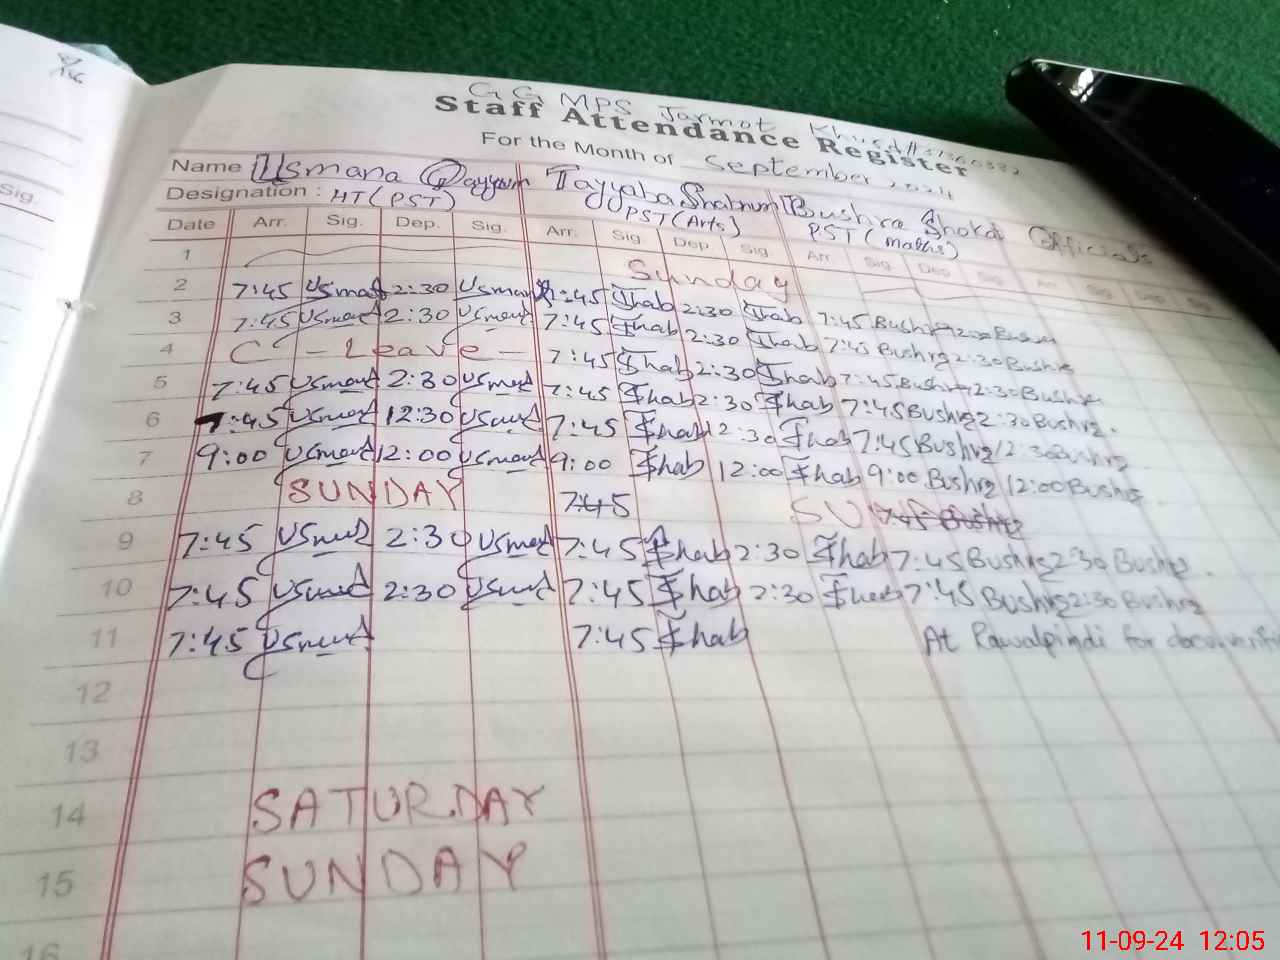 GGMPS Jarmot Khurd
Staff Attendance Register
For the Month of September 2024
Name Usmana Qayyum Tayyaba Shabnum Bushra Shokat Officials
Designation : HT(PST) PST(Arts) PST(maths)
Date Arr. Sig. Dep. Sig. Arr. Sig. Dep. Sig. Arr. Sig. Dep. Sig. Arr. Sig. Dep. Sig.
1 Sunday
2 7:45 Usmat 2:30 Usmat 7:45 Shab 2:30 Shab 7:45 Bushra 2:30 Bushra
3 7:45 Usmat 2:30 Usmat 7:45 Shab 2:30 Shab 7:45 Bushra 2:30 Bushra
4 C - Leave - 7:45 Shab 2:30 Shab 7:45 Bushra 2:30 Bushra
5 7:45 Usmat 2:30 Usmat 7:45 Shab 2:30 Shab 7:45 Bushra 2:30 Bushra
6 7:45 Usmat 12:30 Usmat 7:45 Shab 12:30 Shab 7:45 Bushra 12:30 Bushra
7 9:00 Usmat 12:00 Usmat 9:00 Shab 12:00 Shab 9:00 Bushra 12:00 Bushra
8 SUNDAY 7:45 SU 7:45 Bushra
9 7:45 Usmat 2:30 Usmat 7:45 Shab 2:30 Shab 7:45 Bushra 2:30 Bushra
10 7:45 Usmat 2:30 Usmat 7:45 Shab 2:30 Shab 7:45 Bushra 2:30 Bushra
11 7:45 Usmat 7:45 Shab At Rawalpindi for
12
13
14 SATURDAY
15 SUNDAY
16
Sig.
11-09-24 12:05